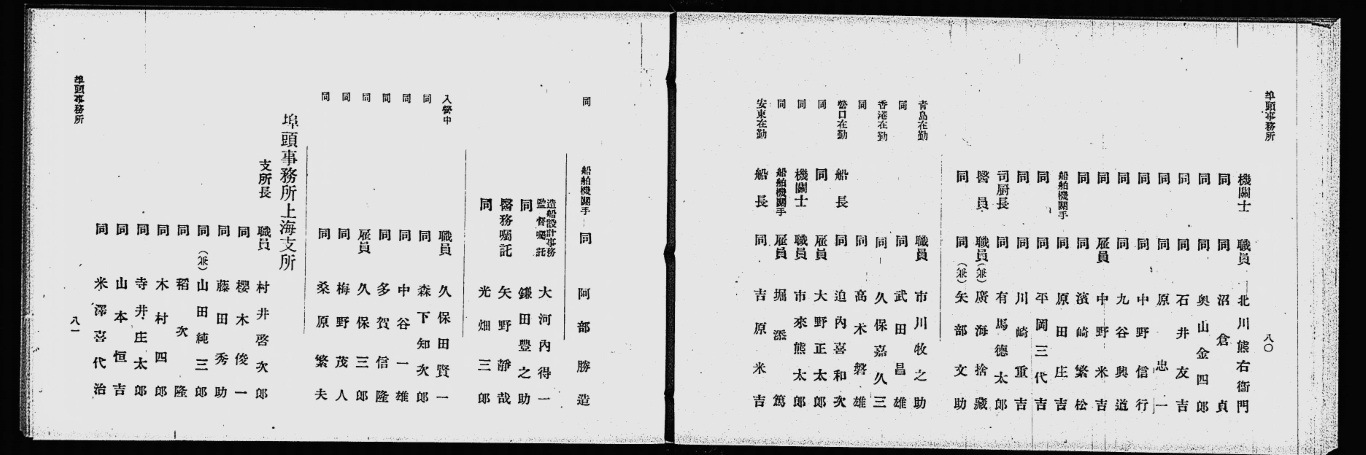 埠頭事務所
八〇
機關士 職員 北川熊右衞門
同 同 沼倉貞
同 同 奥山金四郎
同 同 石井友吉
同 同 原忠一
同 同 中野信行
同 同 九谷興道
同 雇員 中野米吉
同 同 濱崎繁松
船舶機關手 同 原田庄吉
同 同 平岡三代吉
同 同 川崎重吉
司厨長 同 有馬德太郎
醫員 職員(兼) 廣海捨藏
同 同(兼) 矢部文助
青島在勤 職員 市川牧之助
同 同 武田昌雄
香港在勤 同 久保嘉久三
同 同 高木磐雄
營口在勤 船長 同 迫內喜和次
同 同 雇員 大野正太郎
同 機關士 職員 市來熊太郎
同 船舶機關手 雇員 堀添篤
安東在勤 船長 同 吉原米吉
同 船舶機關手 同 阿部勝造
造船設計事務監督囑託 大河內得一
同 鎌田豐之助
醫務囑託 矢野靜哉
同 光畑三郎
入營中 職員 久保田賢一
同 同 森下知次郎
同 同 中谷一雄
同 同 多賀信隆
同 雇員 久保三郎
同 同 梅野茂人
同 同 桑原繁夫
埠頭事務所上海支所
支所長 職員 村井啓次郎
同 櫻木俊一
同 藤田秀助
同(兼) 山田純三郎
同 稻次隆
同 木村四郎
同 寺井庄太郎
同 山本恒吉
同 米澤喜代治
埠頭事務所
八一